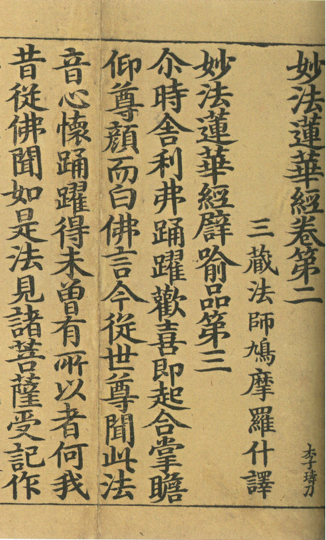 妙法蓮華經卷第二
三藏法師鳩摩羅什譯
妙法蓮華經譬喻品第三
尒時舍利弗踊躍歡喜即起合掌瞻
仰尊顔而白佛言今從世尊聞此法
音心懷踊躍得未曾有所以者何我
昔從佛聞如是法見諸菩薩受記作